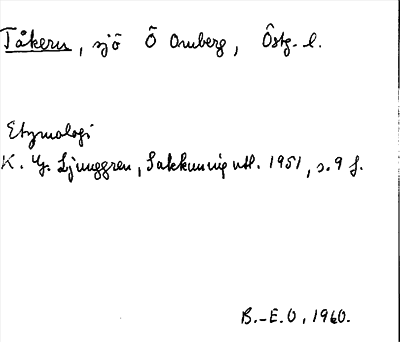 Tåkern, sjö Ö Omberg, Östg. l.
Etymologi
K. G. Ljunggren, Sakkunnig utl. 1951, s. 9 f.
B.-E.O, 1960.